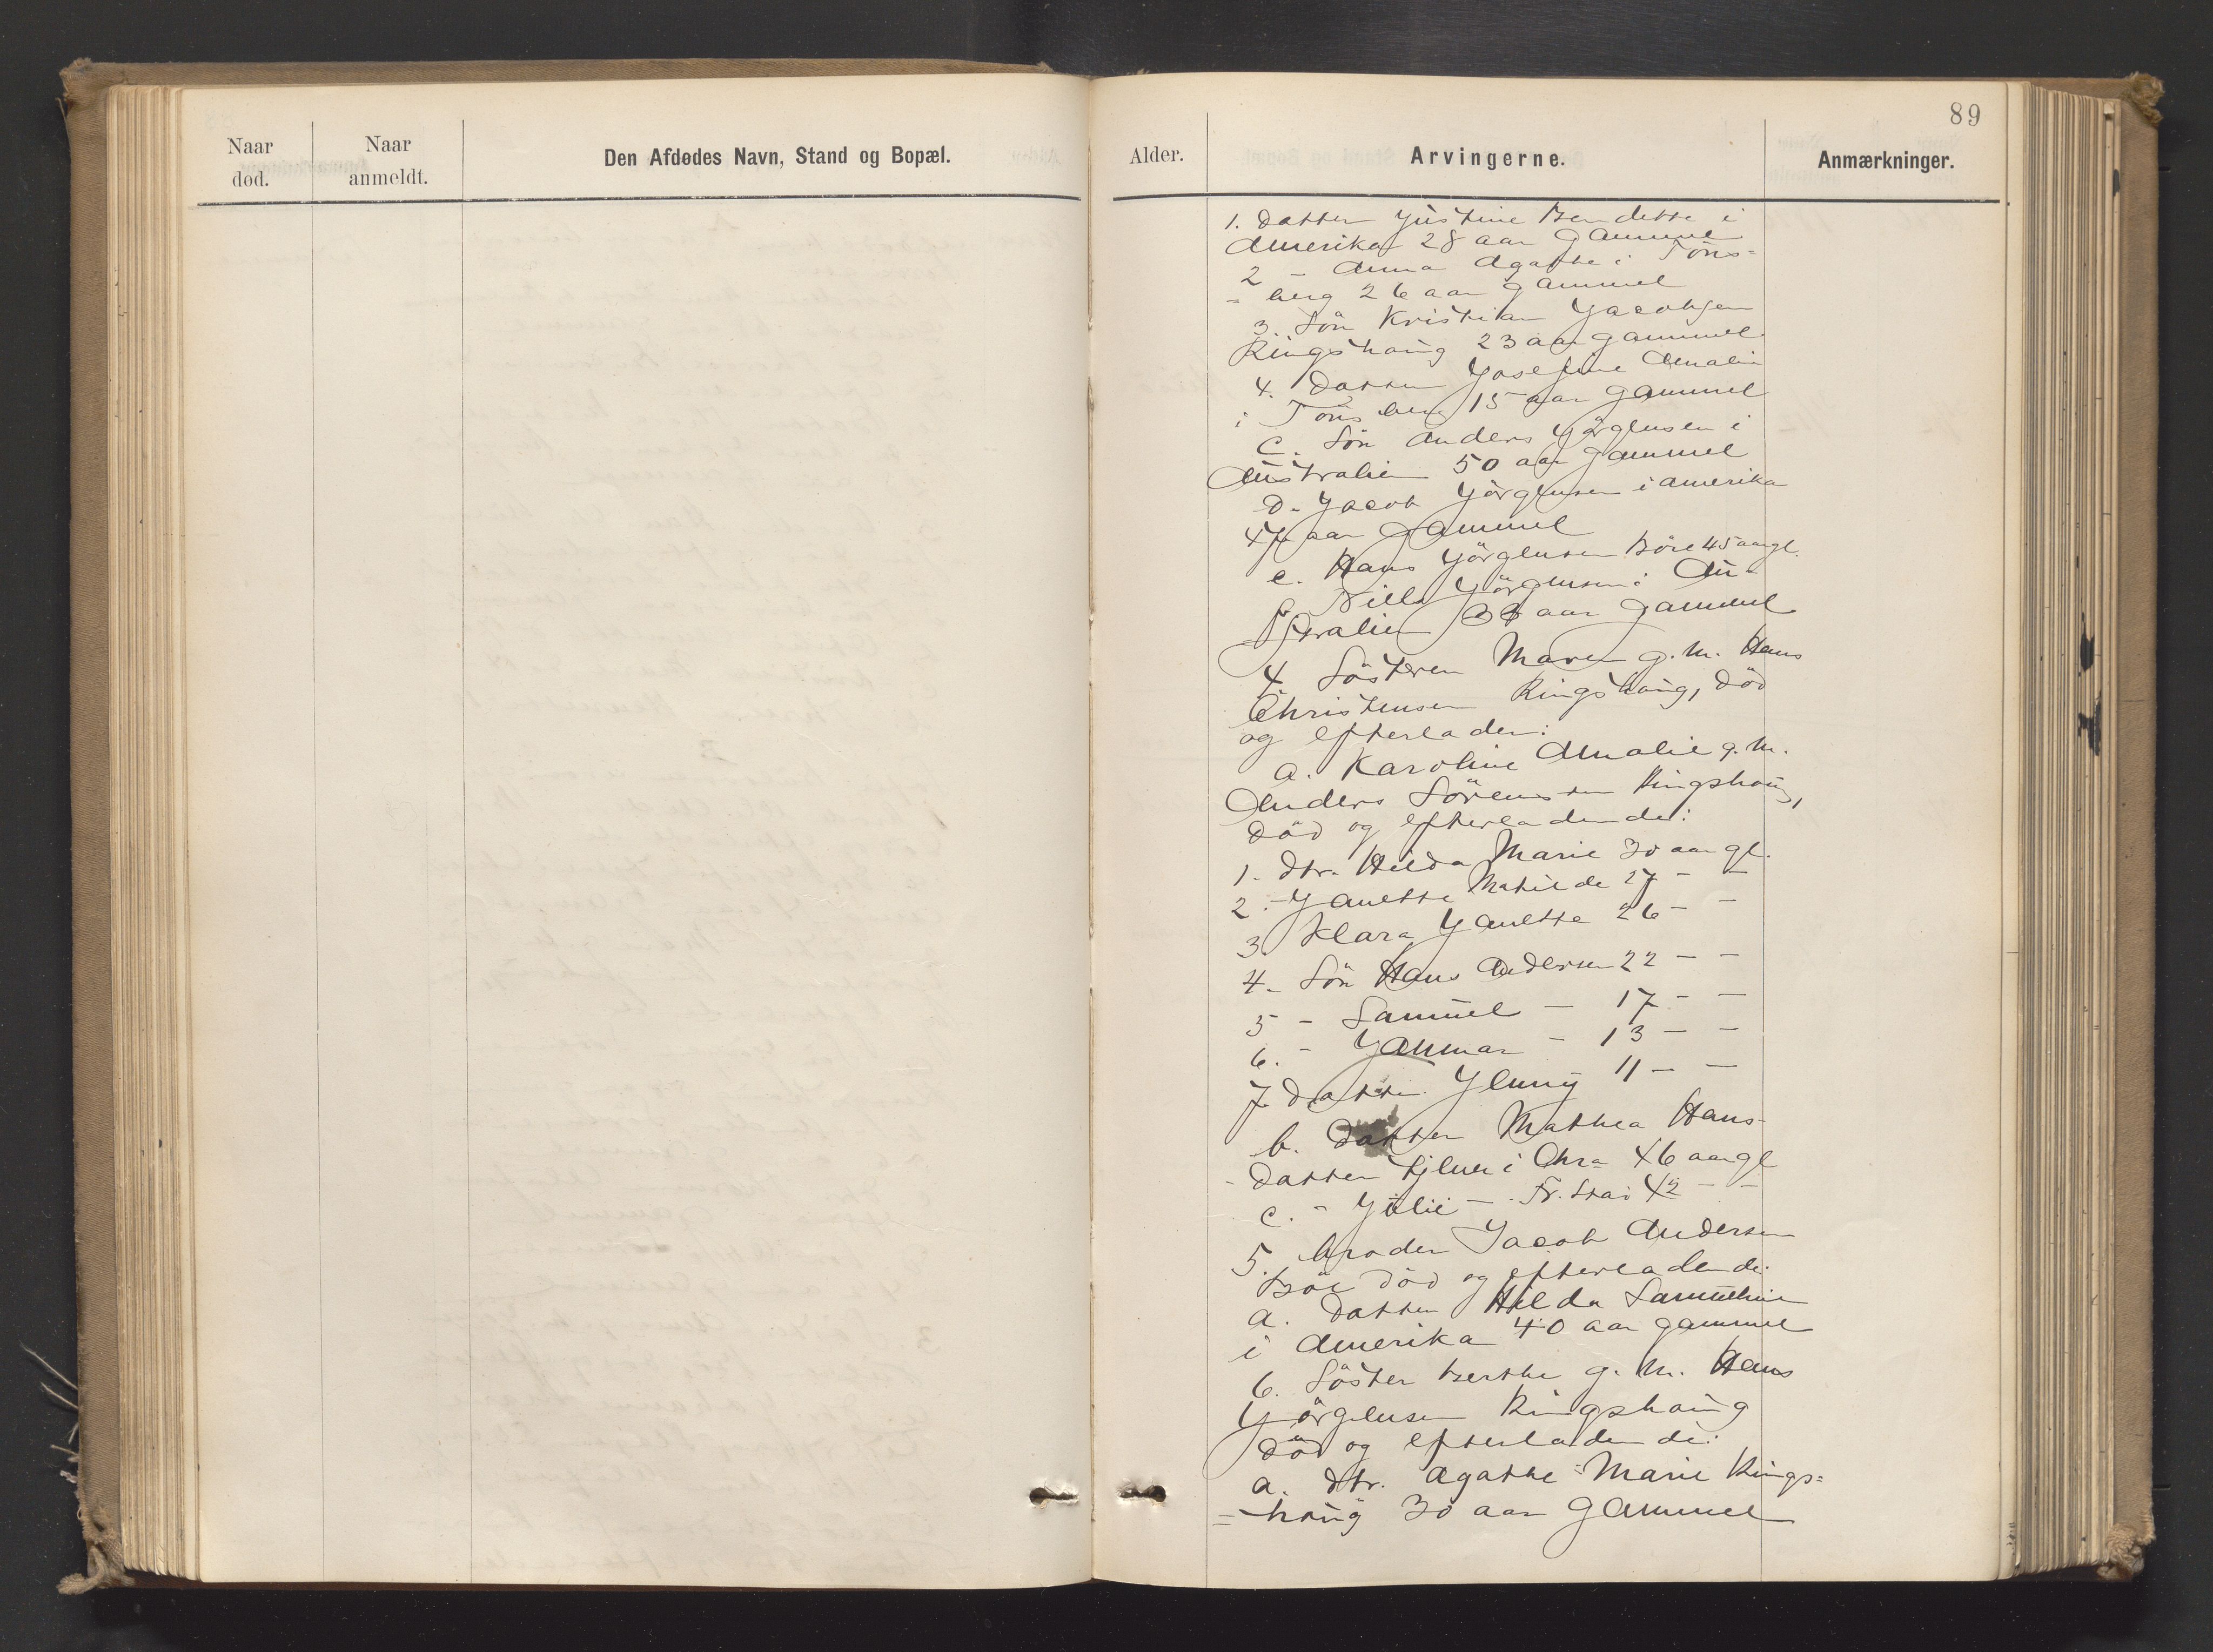 89
Naar død.
Naar anmeldt.
Den Afdødes Navn, Stand og Bopæl.
Alder.
Arvingerne.
Anmærkninger.
1. Datter Justine Bendette i
Amerika 28 aar gammel
2 - Anna Agathe i Töns=
= berg 26 aar gammel
3. Sön Kristian Jacobsen
Ringshaug 23 aar gammel
4. Datter Josefine Amalie
i Tönsberg 15 aar gammel
C. Sön Anders Jörgensen i
Australien 50 aar gammel
D. Jacob Jörgensen i Amerika
47 aar gammel
e. Hans Jörgensen Böre 45 aar gl.
f. Nills Jörgensen i Au-
= stralien aar gammel
4 Sösteren Maren g. m. Hans
Christensen Ringshaug, död
og efterlader:
a. Karoline Amalie g. m.
Anders Sörensen Ringshaug,
död og efterladende:
1. Dtr. Hilda Marie 30 aar gl.
2. - Janette Matilde 27 - -
3. Klara Janette 26 - -
4. Sön Hans Andersen 22 - -
5 - Samuel - 17 - -
6. - Janmar - 13 - -
7 Datter Jenny 11 - -
b. Datter Mathea Hans-
- Datter tjener i Chra 46 aar gl
c. - Julie - Fr. 42 - -
5. broder Jacob Andersen
Böe död og efterladende:
a. Datter Hilda Samueline
i Amerika 40 aar gammel
6. Söster Berthe g. m. Hans
Jörgensen Ringshaug
död og efterladende:
a. Dtr. Agathe Marie Rings=
= haug 30 aar gammel